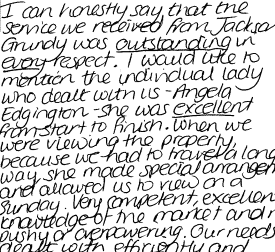 I can honestly say that the
service we received from Jackson
Grundy was outstanding in
every respect. I would like to
mention the individual lady
who dealt with us - Angela
Edgington - she was excellent
from start to finish. When we
were viewing the property,
because we had to travel a long
way she made special arrangem
and allowed us to view on a
Sunday. Very competent, excellen
knowledge of the market and n
pushy or overpowering. Our needs
dealt with efficiently and